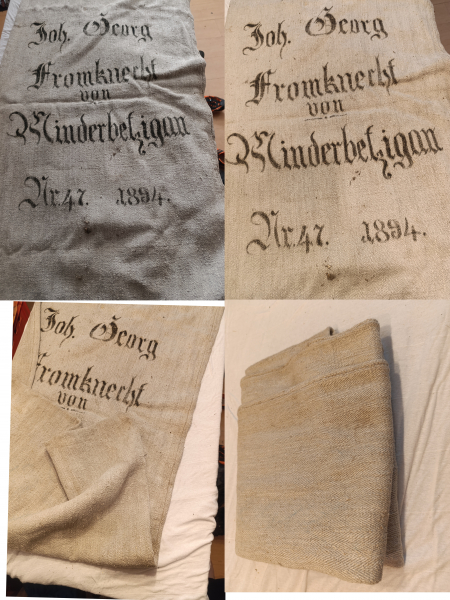 Joh. Georg
Fromknecht
von
Minderbetzigau
Nr. 47. 1894.
Joh. Georg
Fromknecht
von
Minderbetzigau
Nr. 47. 1894.
Joh. Georg
Fromknecht
von